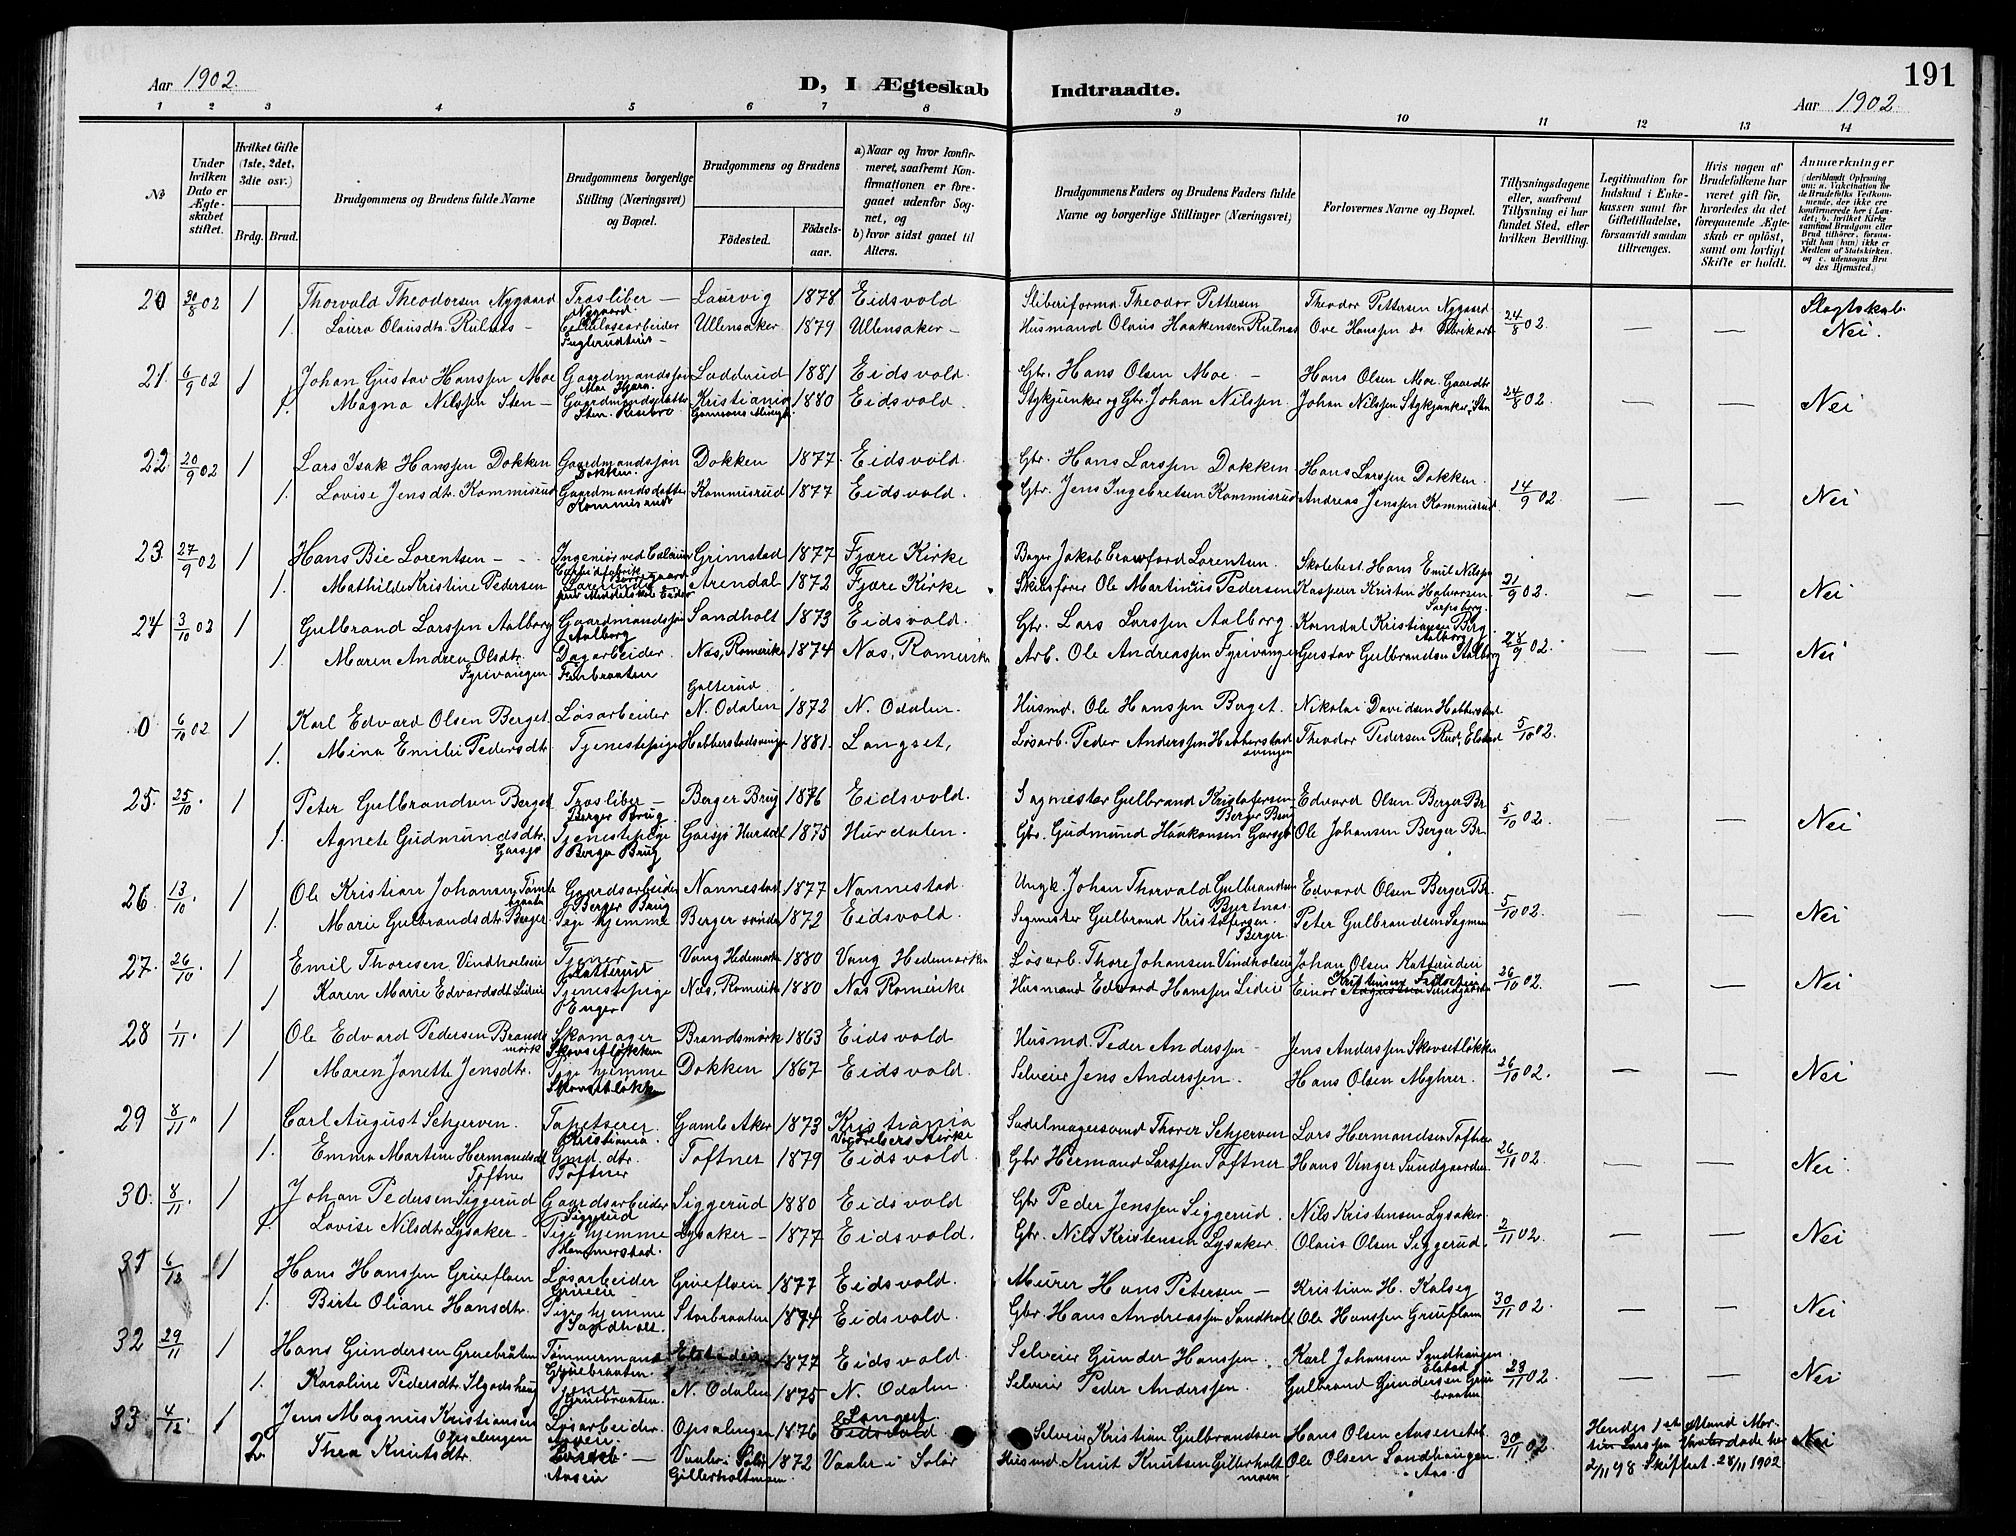 191
Aar 1902.
D, I Ægteskab Indtraadte.
Aar 1902
1 2 3 4 5 6 7 8 9 10 11 12 13 14
No
Under hvilken Dato er Ægteskabet stiftet.
Hvilket Gifte (1ste, 2det, 3die osv.)
Brdg. Brud.
Brudgommens og Brudens fulde Navne
Brudgommens borgerlige Stilling (Næringsvei) og Bopæl.
Brudgommens og Brudens
Fødested.
Fødselsaar.
a) Naar og hvor konfirmeret, saafremt Konfirmationen er foregaaet udenfor Sognet, og
b) hvor sidst gaaet til Alters.
Brudgommens Faders og Brudens Faders fulde Navne og borgerlige Stillinger (Næringsvei)
Forlovernes Navne og Bopæl.
Tillysningsdagene eller, saafremt Tillysning ei har fundet Sted, efter hvilken Bevilling.
Legitimation for Indskud i Enkekassen samt for Giftetilladelse, forsaavidt saadan tiltrænges.
Hvis nogen af Brudefolkene har været gift før, hvorledes da det foregaaende Ægteskab er opløst, samt om lovligt Skifte er holdt.
Anmærkninger (deriblandt Oplysning om: a. Vaccination for de Brudefolks Vedkommende, der ikke ere konfirmerede her i Landet; b. hvilket Kirkesamfund Brudgom eller Brud tilhører, forsaavidt han (hun) ikke er Medlem af Statskirken, og c. udensogns Brudes Hjemsted.)
20 30/8 02 1 Thorvald Theodorsen Nygaard Træsliber — Nygaard Laurvig 1878 Eidsvold Sliberiformd. Theodor Pettersen Theodor Pettersen Nygaard 24/8 02. — — Slegtskab
1. Laura Olausdtr. Rulnes — Ullensaker 1879 Ullensaker — Husmand Olaus Haakensen Rulnes Ove Hanssen Nei.
21. 6/9 02 1 Johan Gustav Hanssen Moe Gaardmandssøn Ladderud 1881 Eidsvold. Gbr. Hans Olsen Moe — Hans Olsen Moe. Gaardbr 24/8 02. — — Nei
1. Magna Nilssen Sten — Kristiania 1880 Eidsvold. Stykjunker og Gbr. Johan Nilssen Johan Nilssen Stykjunker, Sten
22 20/9 02 1 Lars Isak Hanssen Dokken Gaardmandssøn Dokken Dokken 1877. Eidsvold. Gbr. Hans Larssen Dokken Hans Larssen Dokken. 14/9 02 — — Nei
1. Lovise Jensdtr. Kommisrud Gaardmandsdatter Kommisrud Kommisrud 1877 Eidsvold. Gbr. Jens Ingebretsen Kommisrud Andreas Jenssen Kommisrud
23 27/9 02 1 Hans Bie Lorentsen — Ingeniør ved Calcium Carbidfabrik Borregaard Grimstad 1877 Fjære Kirke Bager Jakob Crawford Lorentsen. Skolebest. Hans Emil Nilssen 21/9 02. — — Nei
1. Mathilde Kristine Pedersen Lærerinde Arendal 1872 Fjære Kirke Skibsfører Ole Martinus Pedersen Kasserer Kristen Halvorsen Sarpsborg.
24 3/10 02 1 Gulbrand Larssen Aalborg Gaardmandssøn Aalborg Sandholt 1873 Eidsvold. Gbr. Lars Larssen Aalborg. Korndal Kristiansen Berg Aalborg 28/9 02. — — Nei
1. Maren Andrea Olsdtr. Fyrivangen Dagarbeider. Finbraaten Næs, Romerike 1874 Næs, Romerike Arb. Ole Andreassen Fyrivangen Gustav Gulbrandsen Aalborg
0 6/10 02 1 Karl Edvard Olsen Berget Løsarbeider Galterud N. Odalen 1872 N. Odalen. Husmd. Ole Hanssen Berget. Nikolai Davidsen Habberstad 5/10 02.
1. Mina Emilie Pedersdtr. Tjenestepige Habberstadvangen 1881. Langset, Løsarb. Peder Anderssen Habberstadvangen Theodor Pedersen Rud, Elstad
25. 25/10. 1 Peter Gulbrandsen Berget Træsliber — Berger Brug Berger Brug 1876 Eidsvold. Sagmester Gulbrand Kristofersen Berger Brug Edvard Olsen Berger Br. 5/10 02. — — Nei
1. Agnete Gudmundsdtr. Garsjø Tjenestepige Berger Brug Garsjø Hurdal 1875 Hurdalen. Gbr. Gudmund Haakonsen Garsjø Ole Johansen Berger Br.
26. 13/10. 1 Ole Kristian Johansen Tømtebraaten Gaardsarbeider Berger Brug Nannestad 1877 Nannestad. Ungk. Johan Thorvald Gulbrandsen Bjertnæs Edvard Olsen Berger Br. 5/10 02. — — Nei
1. Marie Gulbrandsdtr. Berger. Pige hjemme Berger søndre 1872 Eidsvold. Sagmester Gulbrand Kristofersen. Berger. Peter Gulbrandsen Sagmes
27. 26/10. 1 Emil Thoresen Vindholseie Tjener Vang Hedemarken 1880 Vang Hedemarken Løsarb. Thore Johansen Vindholseie Johan Olsen Katterudeie 26/10 02. — — Nei
1 Karen Marie Edvardsdt. Lideie Tjenestepige Enger Næs, Romerike 1880 Næs Romerike Husmand Edvard Hanssen Lideie Einar
28 1/11. 1 Ole Edvard Pedersen Brandsmørk Skomager Skovsetløkken Brandsmørk 1863 Eidsvold Husmd. Peder Anderssen — Jens Anderssen Skovsetløkken 26/10 02. — — Nei
1 Maren Janette Jensdtr. Pige hjemme Skovsetløkken Dokken 1867 Eidsvold. Selveier Jens Anderssen. Hans Olsen Myhrer.
29 8/11 " 1 Carl August Schjerven. Tapetserer. Kristiania. Gamle Aker 1873 Kristiania Kirke Sadelmagersvend Thorer Schjerven Lars Hermandsen Toftner 26/10 02 — — Nei.
1. Emma Martine Hermandsdt. Toftner Gmd. dtr. Toftner Toftner 1879 Eidsvold. Gbr Hermand Larssen Toftner Hans Vinger Sundgaarden
30. 8/11. 1 Johan Pedersen Siggerud Gaardsarbeider Siggerud Siggerud 1880 Eidsvold Gbr Peder Jenssen Siggerud. Nils Kristensen Lysaker. 2/11 02. — — Nei
1. Lovise Nilsdtr. Lysaker — Pige hjemme Hammerstad. Lysaker — 1877 Eidsvold. Gbr. Nils Kristensen Lysaker Olaus Olsen Siggerud.
31 6/12 1 Hans Hanssen Grueflaen Løsarbeider Grueflaen 1877 Eidsvold. Murer Hans Petersen — Kristian H. Kalseg 30/11 02. — — Nei
1. Birte Oliane Hansdtr. Pige hjemme Sandholt. Storbraaten 1874 Eidsvold. Gbr Hans Andreassen Sandholt Ole Hanssen Grueflaen
32 29/11 1 Hans Gundersen Gruebråten Tømmermand Gruebraaten. 1877 Eidsvold. Selveier Gunder Hanssen. Karl Johansen Sandhaugen. Elstad 23/11 02. — — Nei
1. Karoline Pedersdtr. Tjener Gruebraaten. N. Odalen 1875 N. Odalen. Selveier Peder Anderssen. Gulbrand Gundersen Gruebraaten
33. 4/12. 1 Jens Magnus Kristiansen Opsalengen Løsarbeider. Opsalengen 1876 Langset. Eidsvold Selveier Kristian Gulbrandsen Hans Olsen Aasenstad 30/11 02. Hendes 1ste Ægtemand Martin Larssen døde her 2/11 98 Skifteat. 28/11 1902 Nei
2. Thea Knutsdtr. Aasen Vaaler i Solør Gillerholtmoen. 1872 Vaaler i Solør Husmd. Knut Knutsen Gillerholtmoen Ole Olsen Sandhaugen Aas.